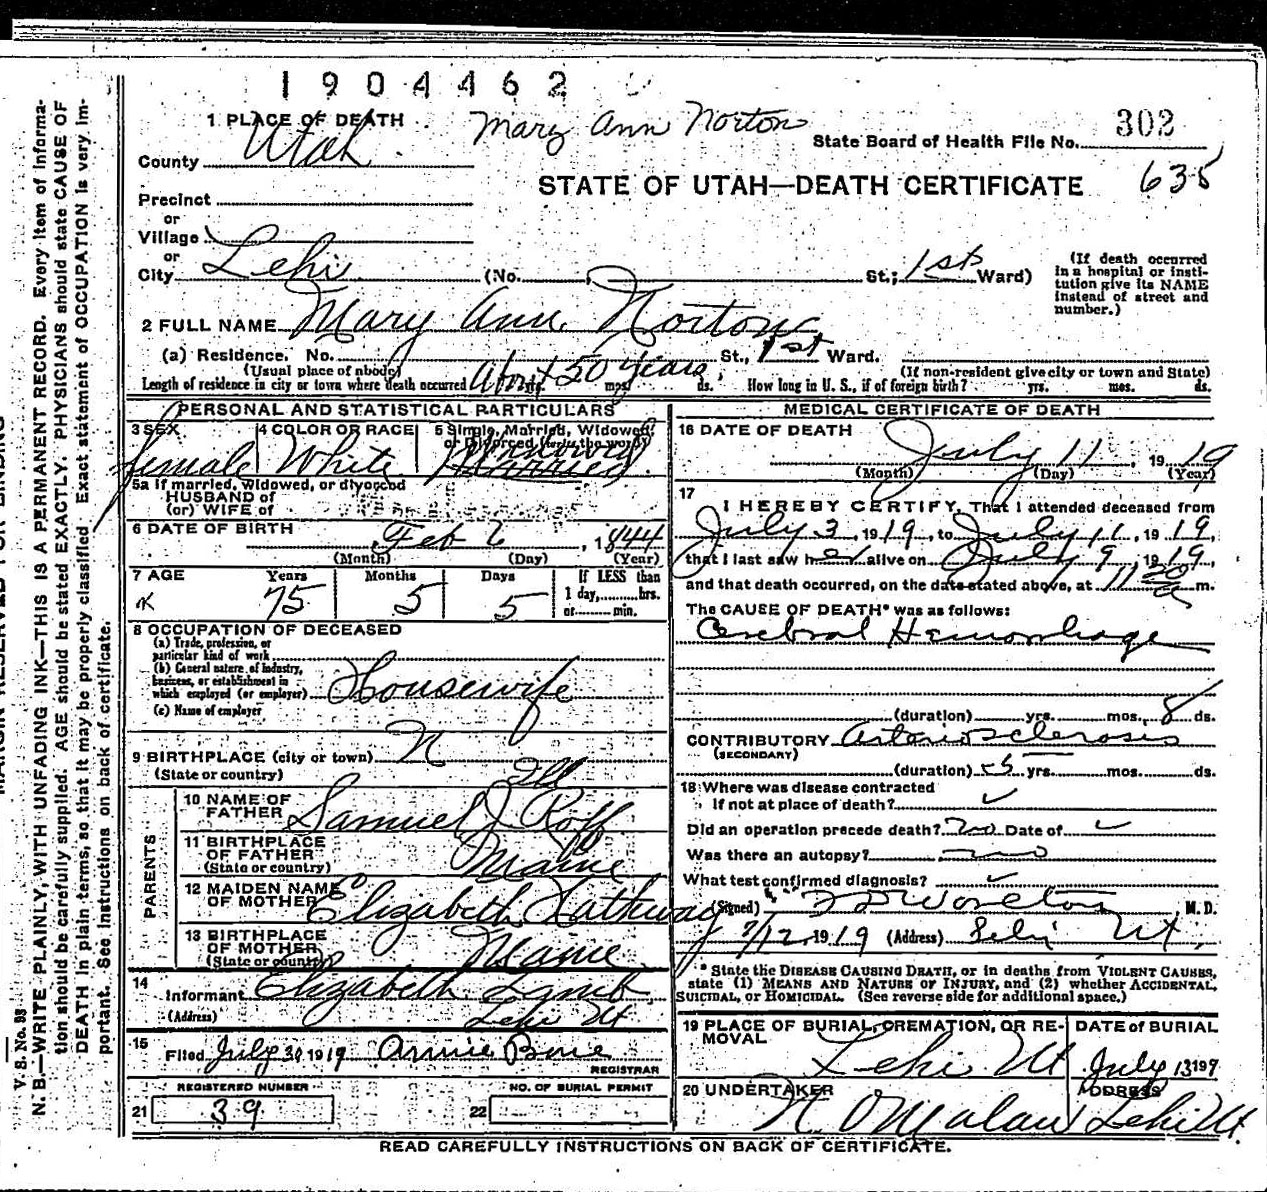 1904462
1 PLACE OF DEATH Mary Ann Norton
State Board of Health File No. 302
County Utah
STATE OF UTAH—DEATH CERTIFICATE 635
Precinct
or
Village
or
City Lehi (No. St.; 1st Ward)
(If death occurred in a hospital or institution give its NAME instead of street and number.)
2 FULL NAME Mary Ann Norton
(a) Residence. No. St., 1st Ward.
(Usual place of abode) (If non-resident give city or town and State)
Length of residence in city or town where death occurred About 50 years mos. ds. How long in U. S., if of foreign birth? yrs. mos. ds.
PERSONAL AND STATISTICAL PARTICULARS
3 SEX female
4 COLOR OR RACE White
5 Single, Married, Widowed, or Divorced (write the word) Widowed Married
5a If married, widowed, or divorced
HUSBAND of
(or) WIFE of
6 DATE OF BIRTH Feb 6, 1844
(Month) (Day) (Year)
7 AGE Years Months Days If LESS than
75 5 5 1 day, hrs.
or min.
8 OCCUPATION OF DECEASED
(a) Trade, profession, or
particular kind of work
(b) General nature of industry,
business, or establishment in
which employed (or employer) Housewife
(c) Name of employer
9 BIRTHPLACE (city or town) N
(State or country) Ill
PARENTS
10 NAME OF FATHER Samuel J Roff
11 BIRTHPLACE OF FATHER Maine
(State or country)
12 MAIDEN NAME OF MOTHER Elizabeth Hathway
13 BIRTHPLACE OF MOTHER Maine
(State or country)
14 Informant Elizabeth Lamb
(Address) Lehi Ut
15 Filed July 30 1919 Annie Bone
REGISTRAR
REGISTERED NUMBER NO. OF BURIAL PERMIT
21 39 22
MEDICAL CERTIFICATE OF DEATH
16 DATE OF DEATH
July 11, 1919
(Month) (Day) (Year)
17
I HEREBY CERTIFY, That I attended deceased from
July 3, 1919, to July 11, 1919,
that I last saw her alive on July 9, 1919,
and that death occurred, on the date stated above, at 11 30 a m.
The CAUSE OF DEATH* was as follows:
Cerebral Hemorrhage
(duration) yrs. mos. 8 ds.
CONTRIBUTORY Arteriosclerosis
(SECONDARY)
(duration) 5 yrs. mos. ds.
18 Where was disease contracted
If not at place of death?
Did an operation precede death? no Date of
Was there an autopsy? no
What test confirmed diagnosis?
(Signed) M. D.
7/12, 1919 (Address) Lehi Ut.
* State the DISEASE CAUSING DEATH, or in deaths from VIOLENT CAUSES,
state (1) MEANS AND NATURE OF INJURY, and (2) whether ACCIDENTAL,
SUICIDAL, or HOMICIDAL. (See reverse side for additional space.)
19 PLACE OF BURIAL, CREMATION, OR REMOVAL DATE of BURIAL
Lehi Ut July 13 1919
20 UNDERTAKER ADDRESS
N. O. Malan Lehi Ut.
READ CAREFULLY INSTRUCTIONS ON BACK OF CERTIFICATE.
V. S. No. 88
N. B.—WRITE PLAINLY, WITH UNFADING INK—THIS IS A PERMANENT RECORD. Every item of informa-
tion should be carefully supplied. AGE should be stated EXACTLY. PHYSICIANS should state CAUSE OF
DEATH in plain terms, so that it may be properly classified. Exact statement of OCCUPATION is very im-
portant. See instructions on back of certificate.